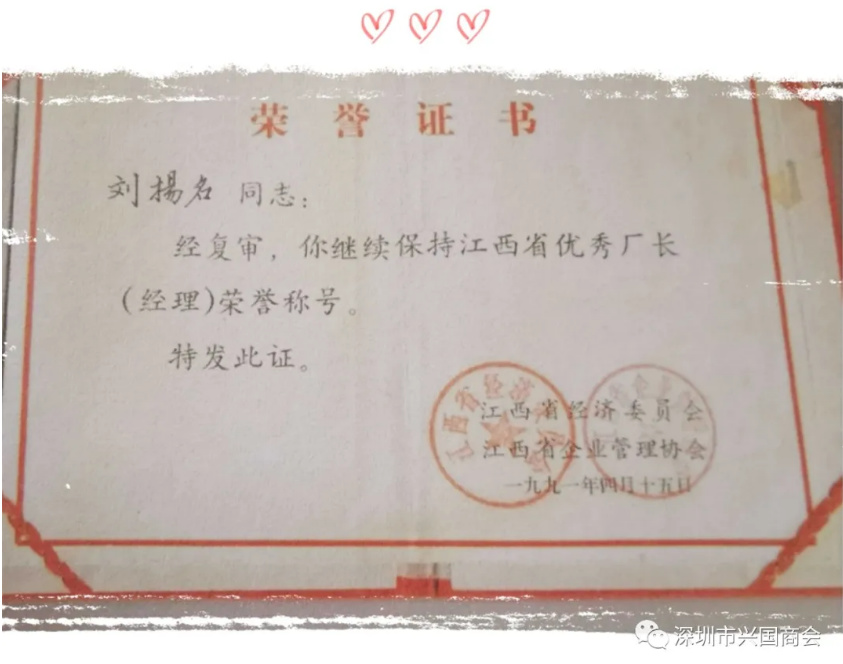 荣誉证书
刘揚名 同志：
经复审，你继续保持江西省优秀厂长
(经理)荣誉称号。
特发此证。
江西省经济委员会
江西省企业管理协会
一九九一年四月十五日
深圳市兴国商会